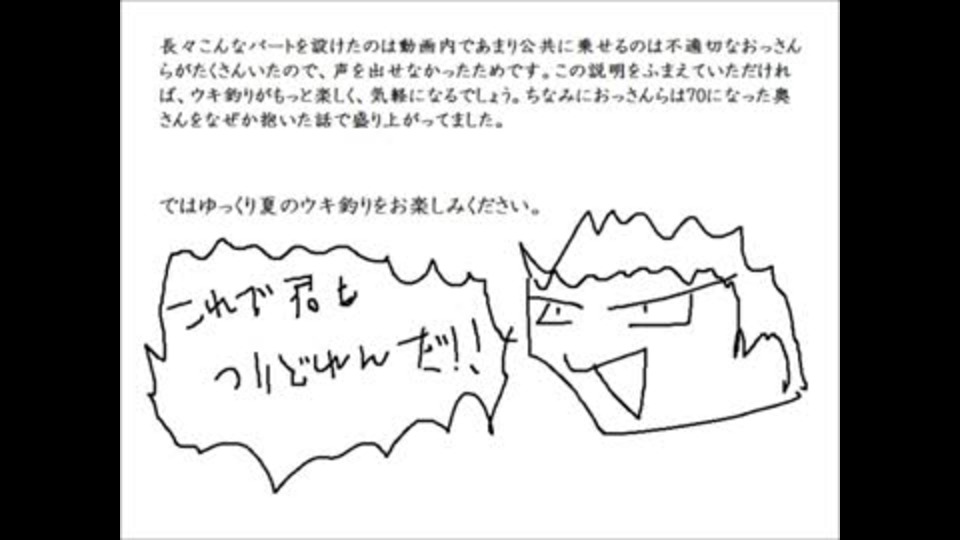 長々こんなパートを設けたのは動画内であまり公共に乗せるのは不適切なおっさん
らがたくさんいたので、声を出せなかったためです。この説明をふまえていただけれ
ば、ウキ釣りがもっと楽しく、気軽になるでしょう。ちなみにおっさんらは70になった奥
さんをなぜか抱いた話で盛り上がってました。
ではゆっくり夏のウキ釣りをお楽しみください。
これで君も
つりどれんだ!!